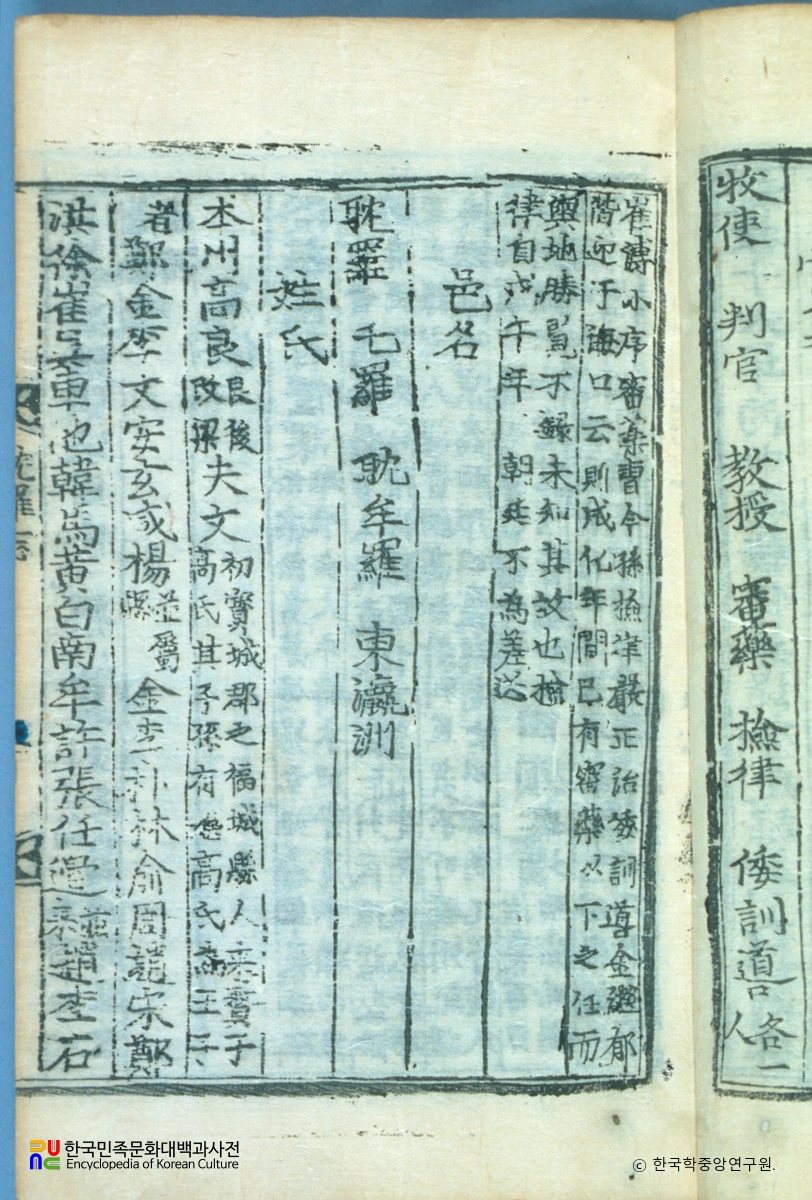 牧使 判官 教授 審藥 檢律 倭訓導各一人
崔溥小序審藥曺今孫檢律嚴正詒倭訓導金繼郁
皆迎于海口云則成化年間已有審藥以下之任而
輿地勝覧不録未知其故也檢
律自戊午年 朝廷不為差送
邑名
耽羅 乇羅 耽牟羅 東瀛洲
姓氏
本州高良良後改梁夫文初寳城郡之福城縣人
高氏其子孫有 高氏為王子
者鄭金李文安玄 楊並屬縣金李朴林俞周 宋鄭
洪徐崔吴車池韓馬黄白南牟許張任邊秦並 趙李石
耽羅志
한국민족문화대백과사전
Encyclopedia of Korean Culture
ⓒ 한국학중앙연구원.